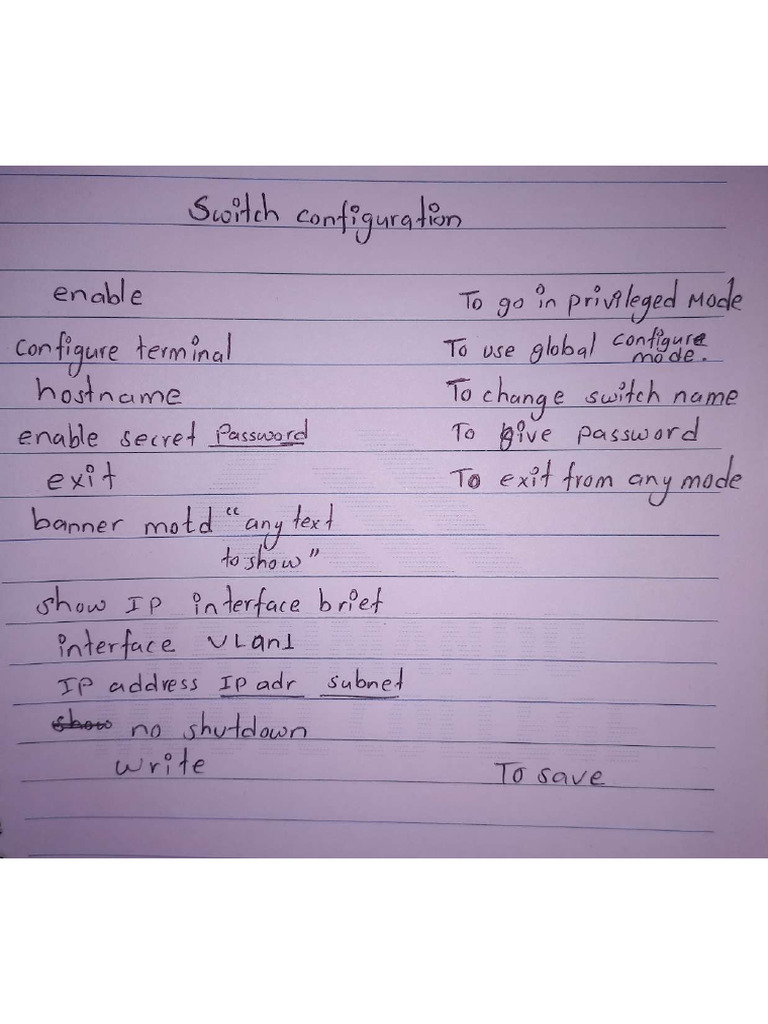 Switch configuration
enable To go in privileged Mode
configure terminal To use global configure mode.
hostname To change switch name
enable secret Password To give password
exit To exit from any mode
banner motd "any text
to show"
show IP interface brief
interface VLan1
IP address IP adr subnet
show no shutdown
write To save